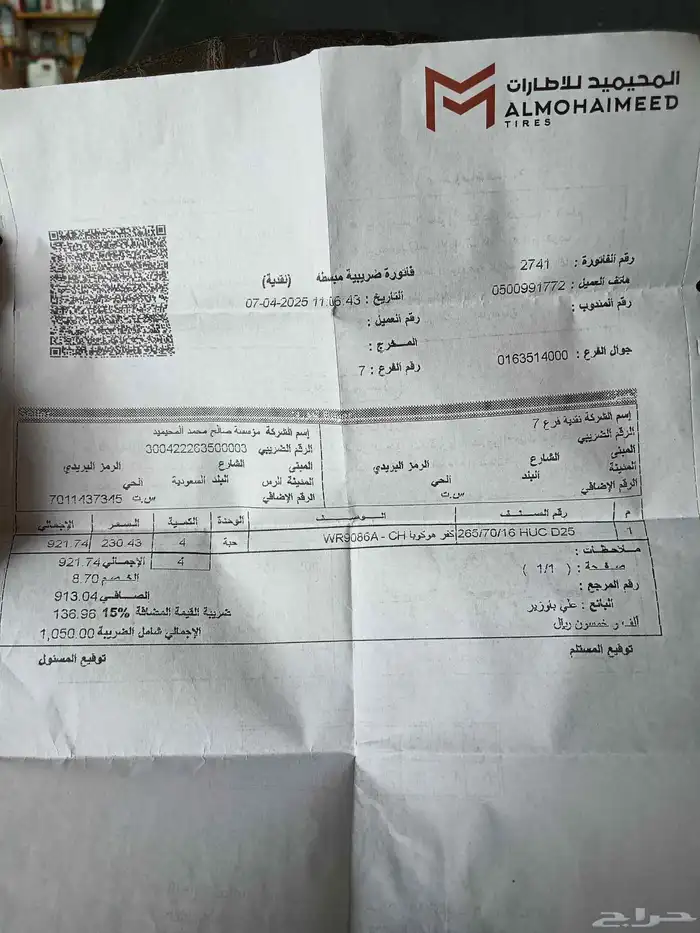 المحيميد للاطارات
ALMOHAIMEED
TIRES
فاتورة ضريبية مبسطه (نقدية)
رقم الفاتورة : 2741
التاريخ : 07-04-2025 11:06:43
هاتف العميل : 0500991772
رقم العميل :
رقم المندوب :
المــخرج :
جوال الفرع : 0163514000
رقم الفرع : 7
إسم الشركة نقدية فرع 7
الرقم الضريبي
المبنى الشارع الرمز البريدي
المدينة البلد الحي
الرقم الإضافي س.ت
إسم الشركة مؤسسة صالح محمد المحيميد
الرقم الضريبي 300422263500003
المبنى الشارع الرمز البريدي
المدينة الرس البلد السعودية الحي
الرقم الإضافي س.ت 7011437345
م رقم الصنف الوصف الوحدة الكمية السعر الإجمالي
1 265/70/16 HUC D25 كفر هوكوبا WR9086A - CH حبة 4 230.43 921.74
4
ملاحظات :
الإجمالي 921.74
صفحة : ( 1/1 )
الخصم 8.70
رقم المرجع :
الصافي 913.04
البائع : علي باوزير
ضريبة القيمة المضافة 15% 136.96
ألف و خمسون ريال
الإجمالي شامل الضريبة 1,050.00
توقيع المستلم
توقيع المسئول
حراج